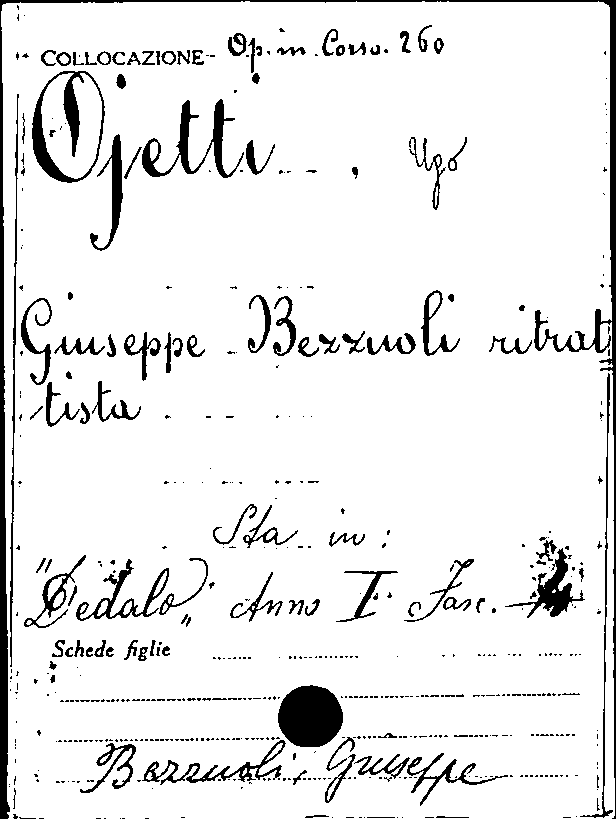 COLLOCAZIONE- Op. in Corso. 260
Ojetti , Ugo
Giuseppe Bezzuoli ritrat=
tista
Sta in:
"Dedalo„ Anno I. Fasc.
Schede figlie
Bezzuoli, Giuseppe